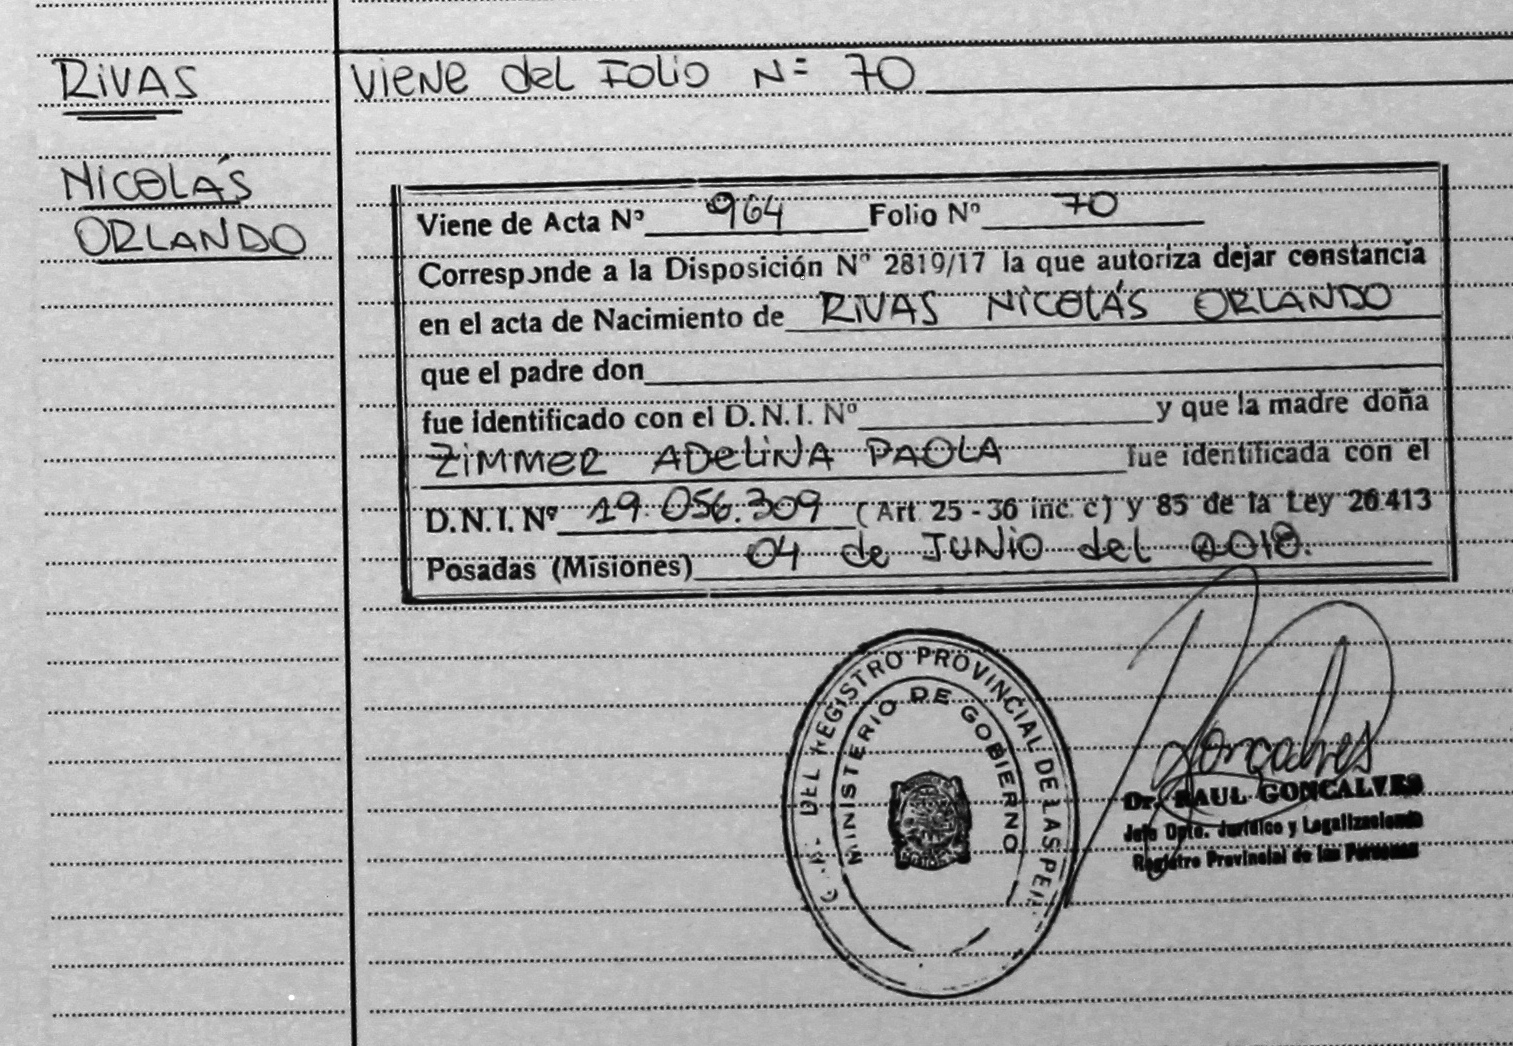 RIVAS
NICOLÁS
ORLANDO
VIENE del FOLIO N= 70
Viene de Acta Nº 964 Folio Nº 70
Corresponde a la Disposición Nº 2819/17 la que autoriza dejar constancia
en el acta de Nacimiento de RIVAS NICOLÁS ORLANDO
que el padre don
fue identificado con el D.N.I. Nº y que la madre doña
ZIMMER ADELINA PAOLA fue identificada con el
D.N.I. Nº 19.056.309 (Art 25 - 36 inc c) y 85 de la Ley 26.413
Posadas (Misiones) 04 de JUNIO del 2018.
DEL REGISTRO PROVINCIAL DE LAS PER
MINISTERIO DE GOBIERNO
Goncalves
Dr. RAUL GONCALVES
Jefe Dpto. Jurídico y Legalizaciones
Registro Provincial de las Personas